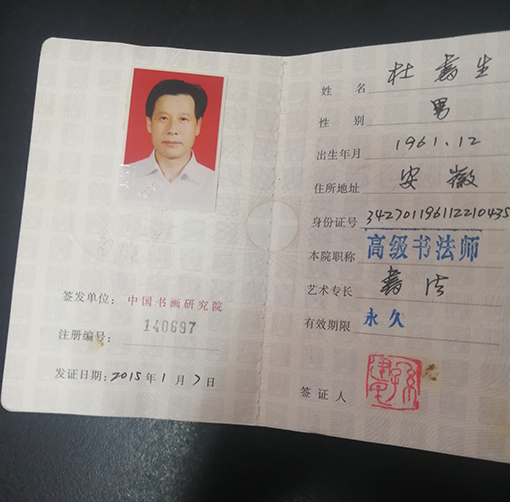 签发单位：中国书画研究院
注册编号：140697
发证日期：2015年1月7日
姓名 杜書生
性别 男
出生年月 1961.12
住所地址 安徽
身份证号 342701196112210435
本院职称 高级书法师
艺术专长 書法
有效期限 永久
签证人